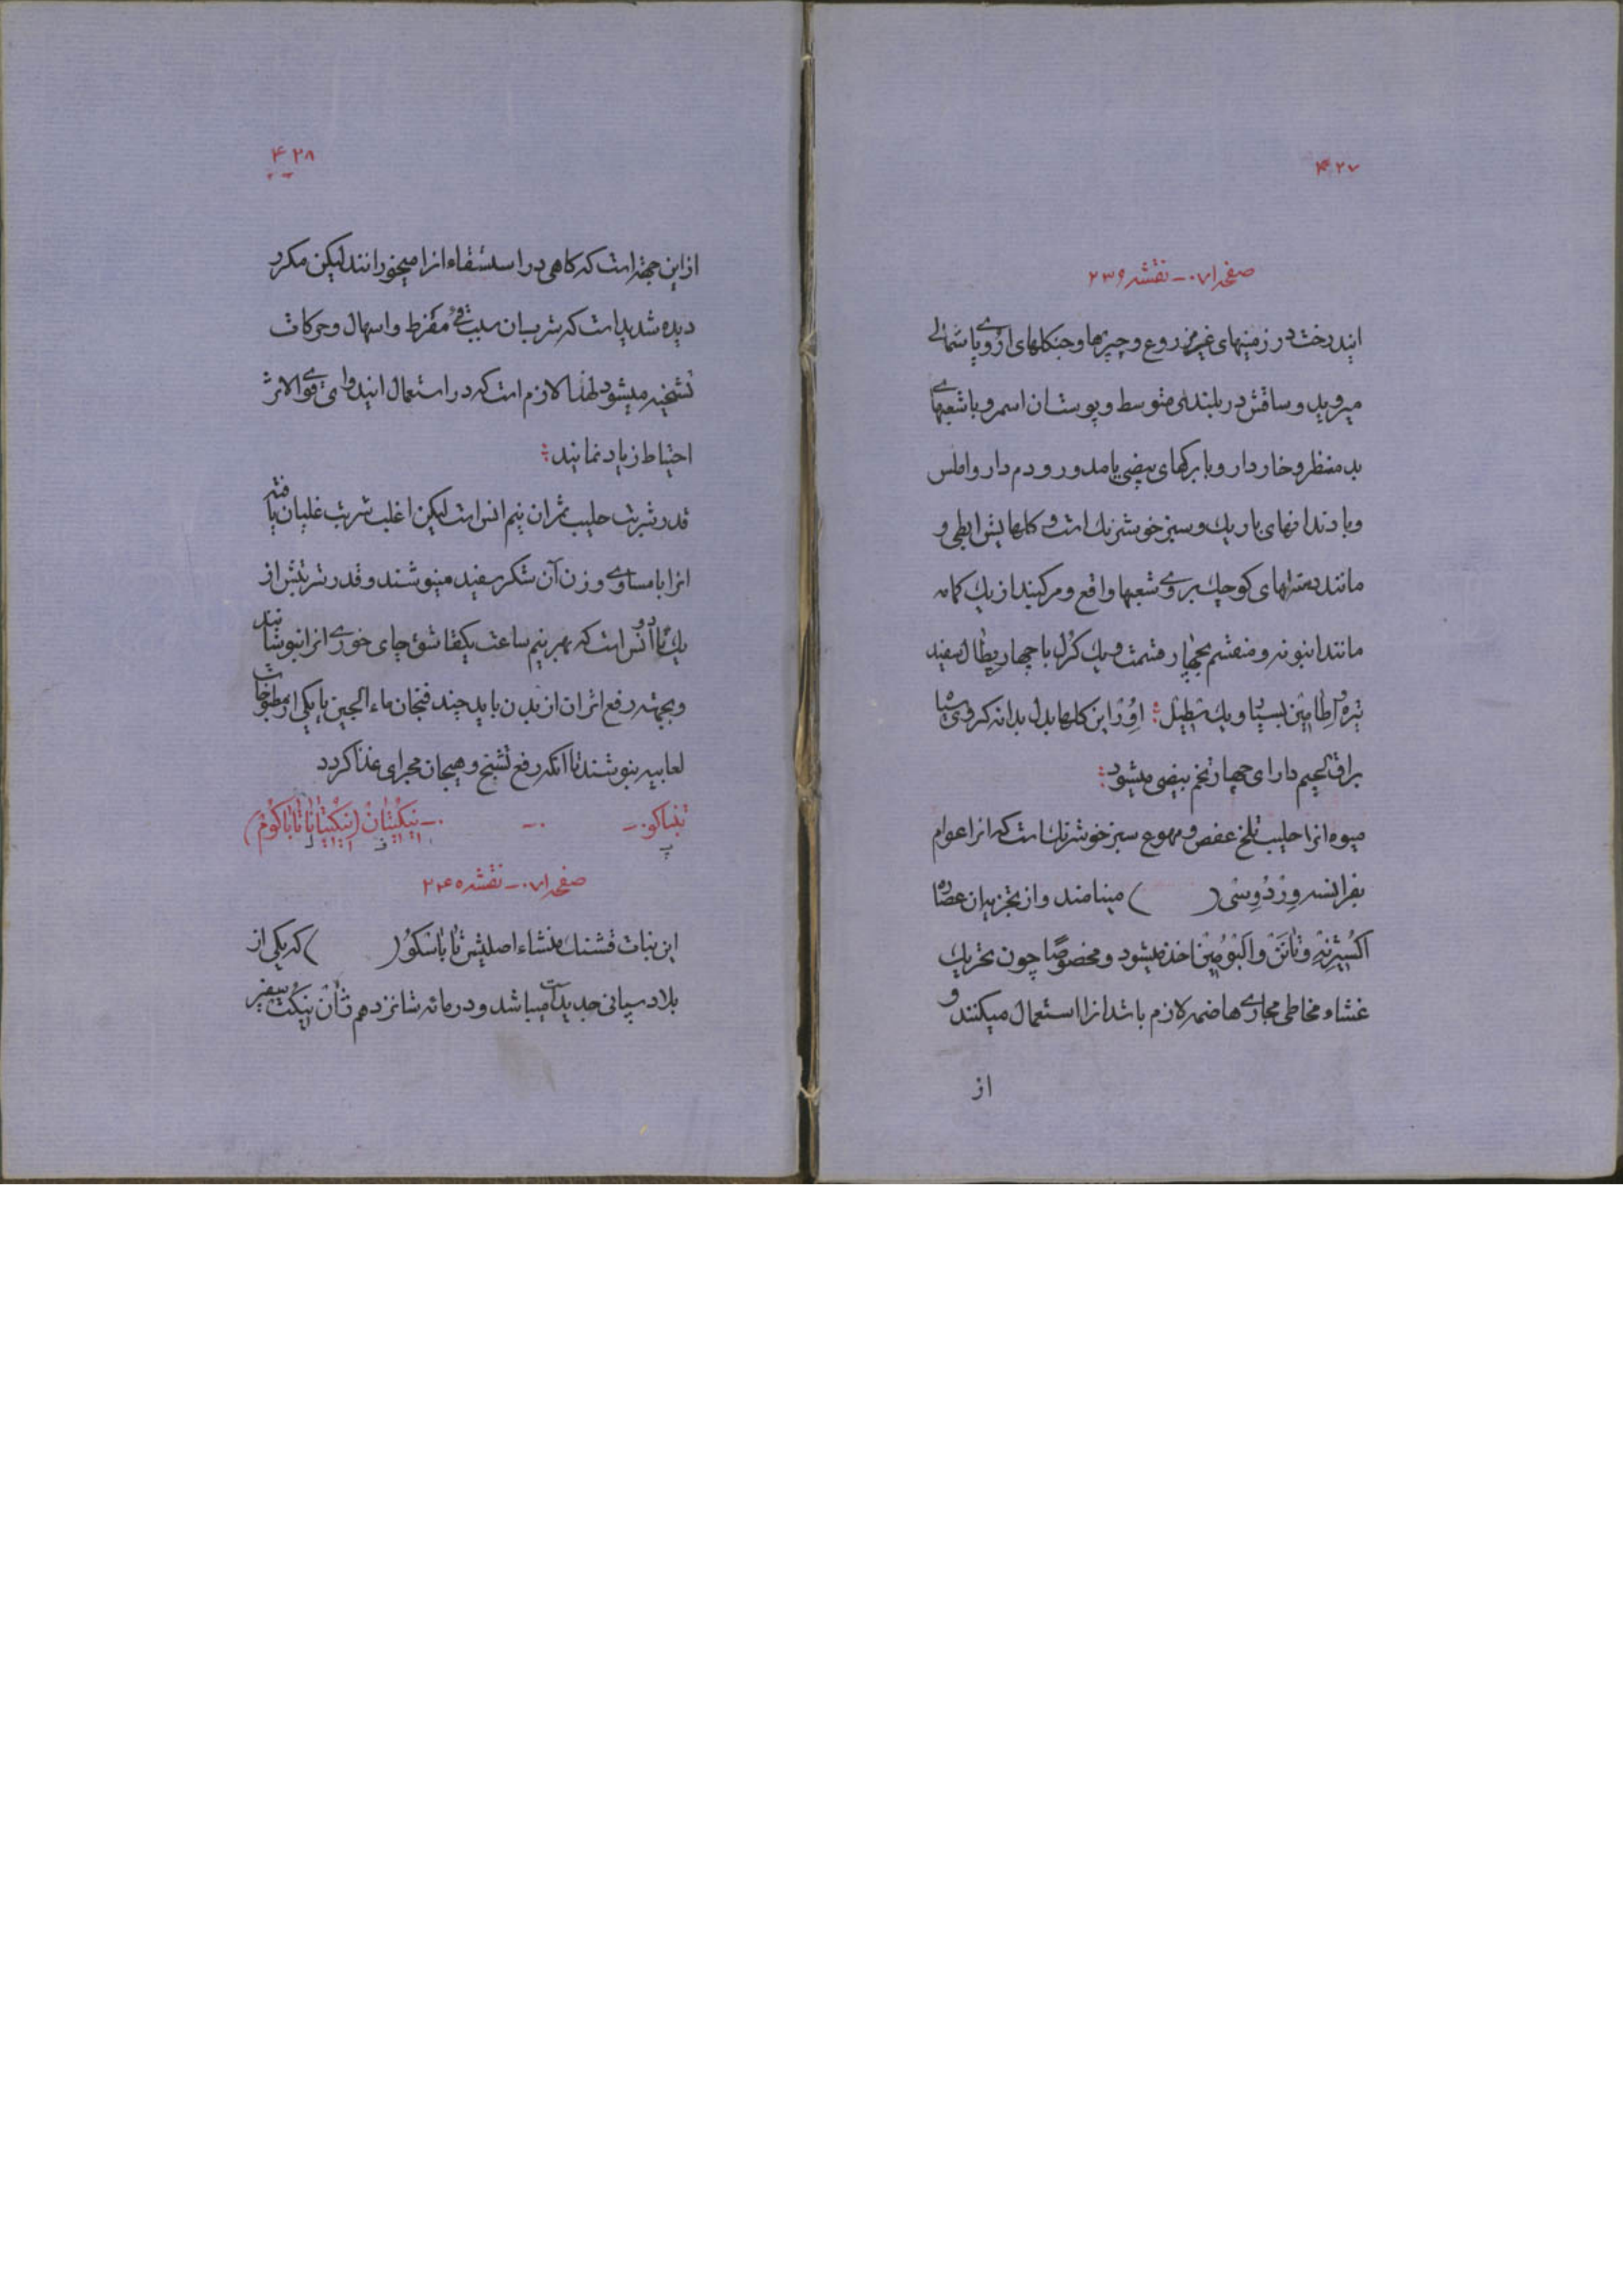 ۴۲۷
صفحه ۷۱ - نقشه ۲۳۹
ایندرخت در زمینهای غیر مزروع و چپرها و جنکلهای اروپای شمالی
میروید و ساقش در بلندی متوسط و پوست ان اسمر و با شعبهای
بد منظر و خاردار و با برکهای بیضی یا مدور و دم دار و املس
و با دندانهای باریك و سبز خوشرنك است و کلهایش ابطی و
مانند دسته‌های کوچك بر روی شعبها واقع و مرکبند از یك کاسه
مانند انبوبه و منقسم بچهار قسمت و یك کرل با چهار پطال سفید
تیره و اطامین بسیار و یك پیطیل : اوور این کلها بدل بدانه کروی سیاه
براق لحیم دارای چهار تخم بیضی میشود :
میوه انرا حلیب تلخ عفص و مهوع سبز خوشرنك است که انرا عوام
بفرانسه وردویسی ( ) مینامند و از تجزیه ان عصاره
اکسیژنه و تانن و البومین اخذ میشود و مخصوصًا چون تحریك
غشاء مخاطی مجاری هاضمه لازم باشد انرا استعمال میکنند و
از
۴۲۸
از این جهة است که کاهی در استسقاء انرا میخورانند لیکن مکرر
دیده شدیداست که شرب ان سبب قی مفرط و اسهال و حرکات
تشنجیه میشود لهذا لازم است که در استعمال ایندوای قوی الاثر
احتیاط زیاد نمایند :
قدر شربت حلیب ثمر ان نیم انس است لیکن اغلب شربت غلیان یافته
انرا با مساوی وزن آن شکر سفید مینوشند و قدر شربتش از
یك تا دو انس است که بهر نیم ساعت یکقاشق چای خوری انرا بنوشانند
و بجهته رفع اثر ان از بدن باید چند فنجان ماء الجبن یا یکی از مطبوخات
لعابیه بنوشند تا انکه رفع تشنج و هیجان مجرای غذا کردد
تنباکو - - - نیکتیان (نیکتیانا تاباکوم)
صفحه ۷۱ - نقشه ۲۴۰
این نبات قشنك منشاء اصلیش تاباسکو ( ) که یکی از
بلاد سپانی جدید است میباشد و در مائه شانزدهم ژان نیکت سفیر